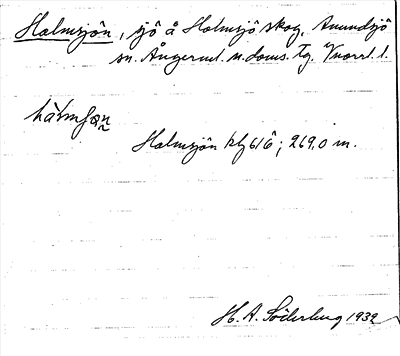 Holmsjön, sjö å Holmsjö skog, Anundsjö
sn. Ångerml. n. doms. tg. Vnorrl. l.
Holmsjön kbl 616; 269,0 m.
H. A. Söderberg 1932